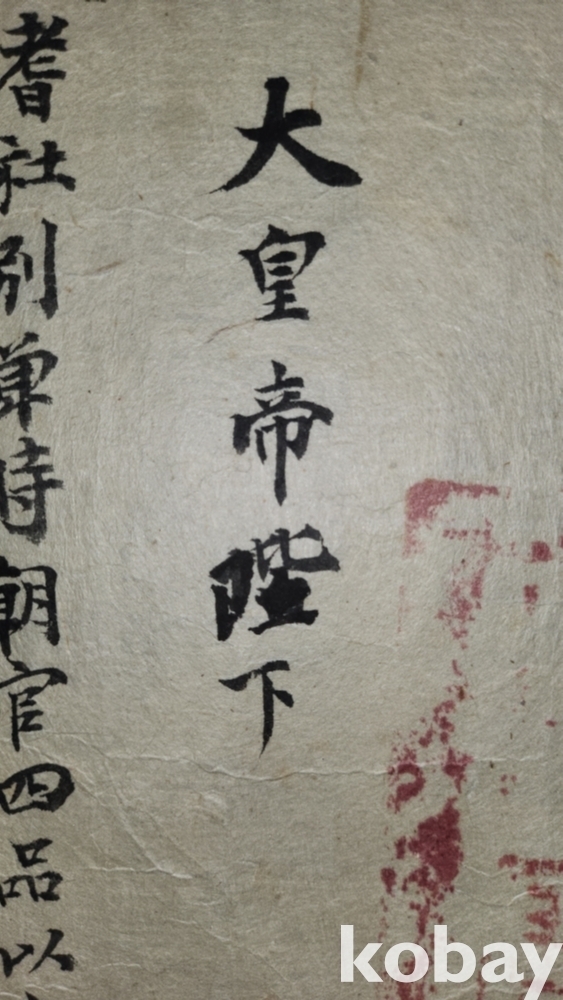 大皇帝陛下
耆社別單時朝官四品以
kobay